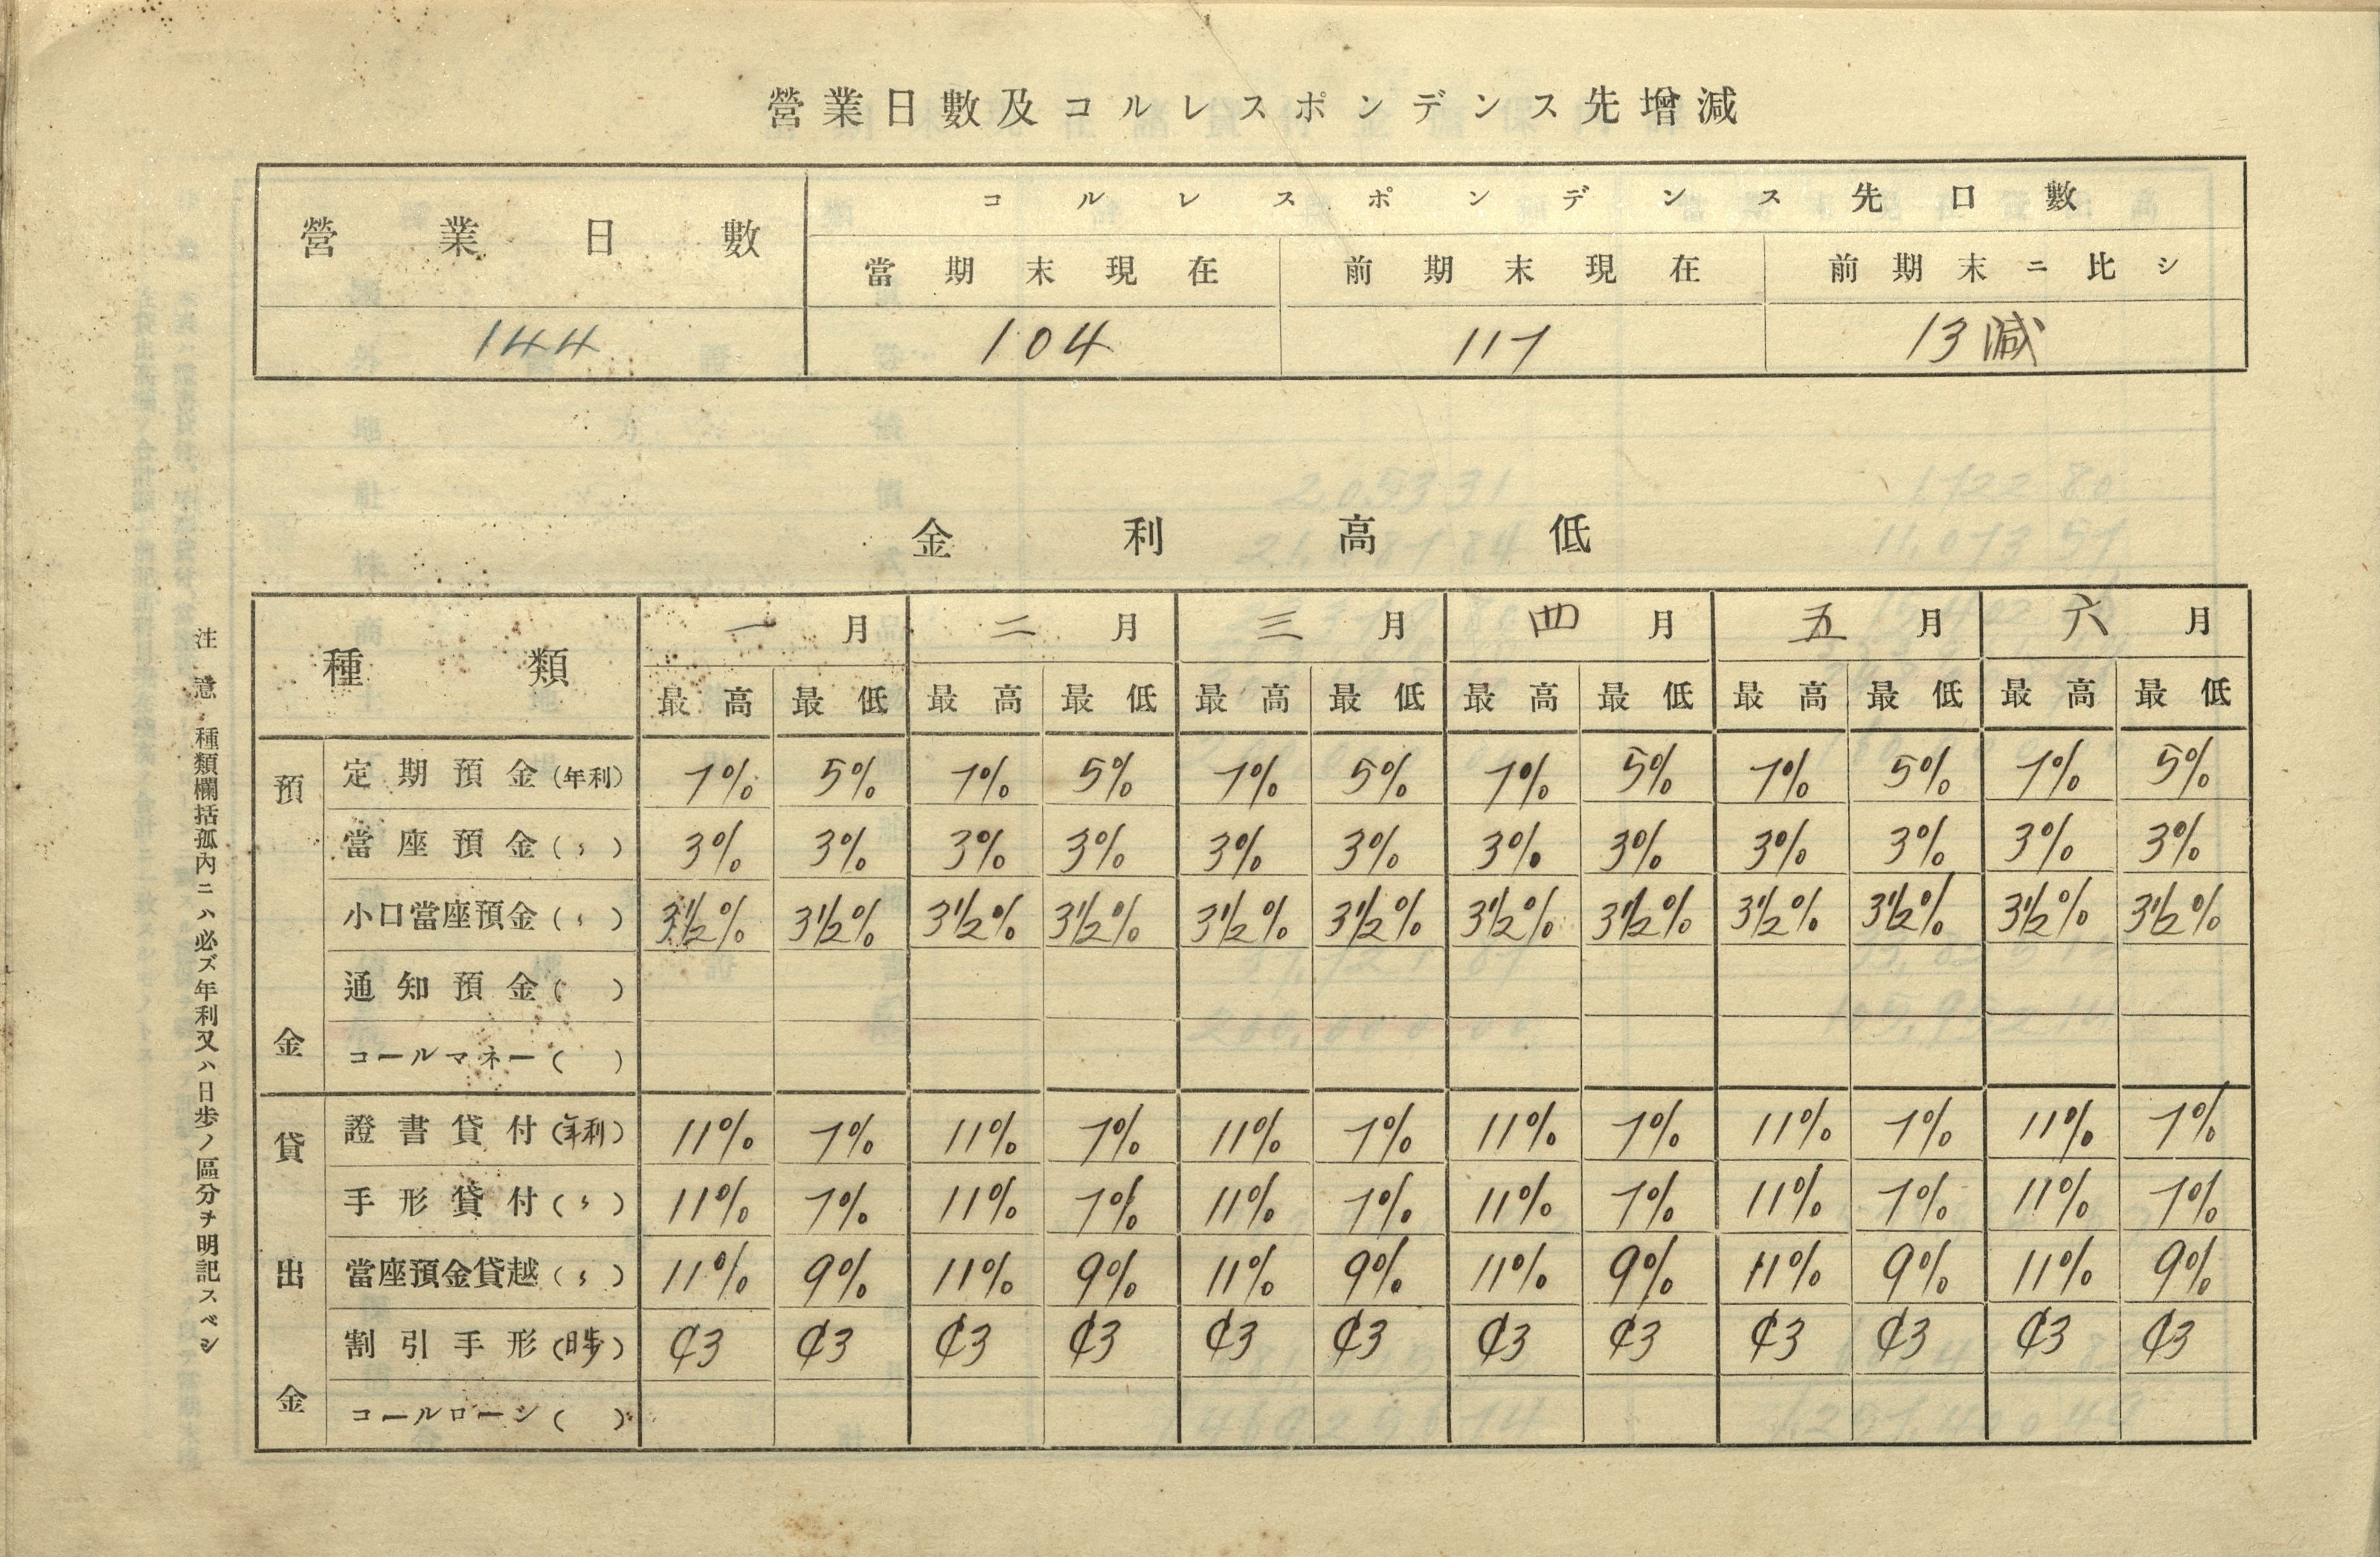 營業日數及コルレスポンデンス先增減
營業日數 コルレスポンデンス先口數
當期末現在 前期末現在 前期末ニ比シ
144 104 117 13減
金利高低
種類 一月 二月 三月 四月 五月 六月
最高 最低 最高 最低 最高 最低 最高 最低 最高 最低 最高 最低
預金
定期預金(年利) 7% 5% 7% 5% 7% 5% 7% 5% 7% 5% 7% 5%
當座預金(〻) 3% 3% 3% 3% 3% 3% 3% 3% 3% 3% 3% 3%
小口當座預金(〻) 3½% 3½% 3½% 3½% 3½% 3½% 3½% 3½% 3½% 3½% 3½% 3½%
通知預金( )
コールマネー( )
貸出金
證書貸付(年利) 11% 7% 11% 7% 11% 7% 11% 7% 11% 7% 11% 7%
手形貸付(〻) 11% 7% 11% 7% 11% 7% 11% 7% 11% 7% 11% 7%
當座預金貸越(〻) 11% 9% 11% 9% 11% 9% 11% 9% 11% 9% 11% 9%
割引手形(日歩) ¢3 ¢3 ¢3 ¢3 ¢3 ¢3 ¢3 ¢3 ¢3 ¢3 ¢3 ¢3
コールローン( )
注意 種類欄括孤內ニハ必ズ年利又ハ日歩ノ區分ヲ明記スベシ